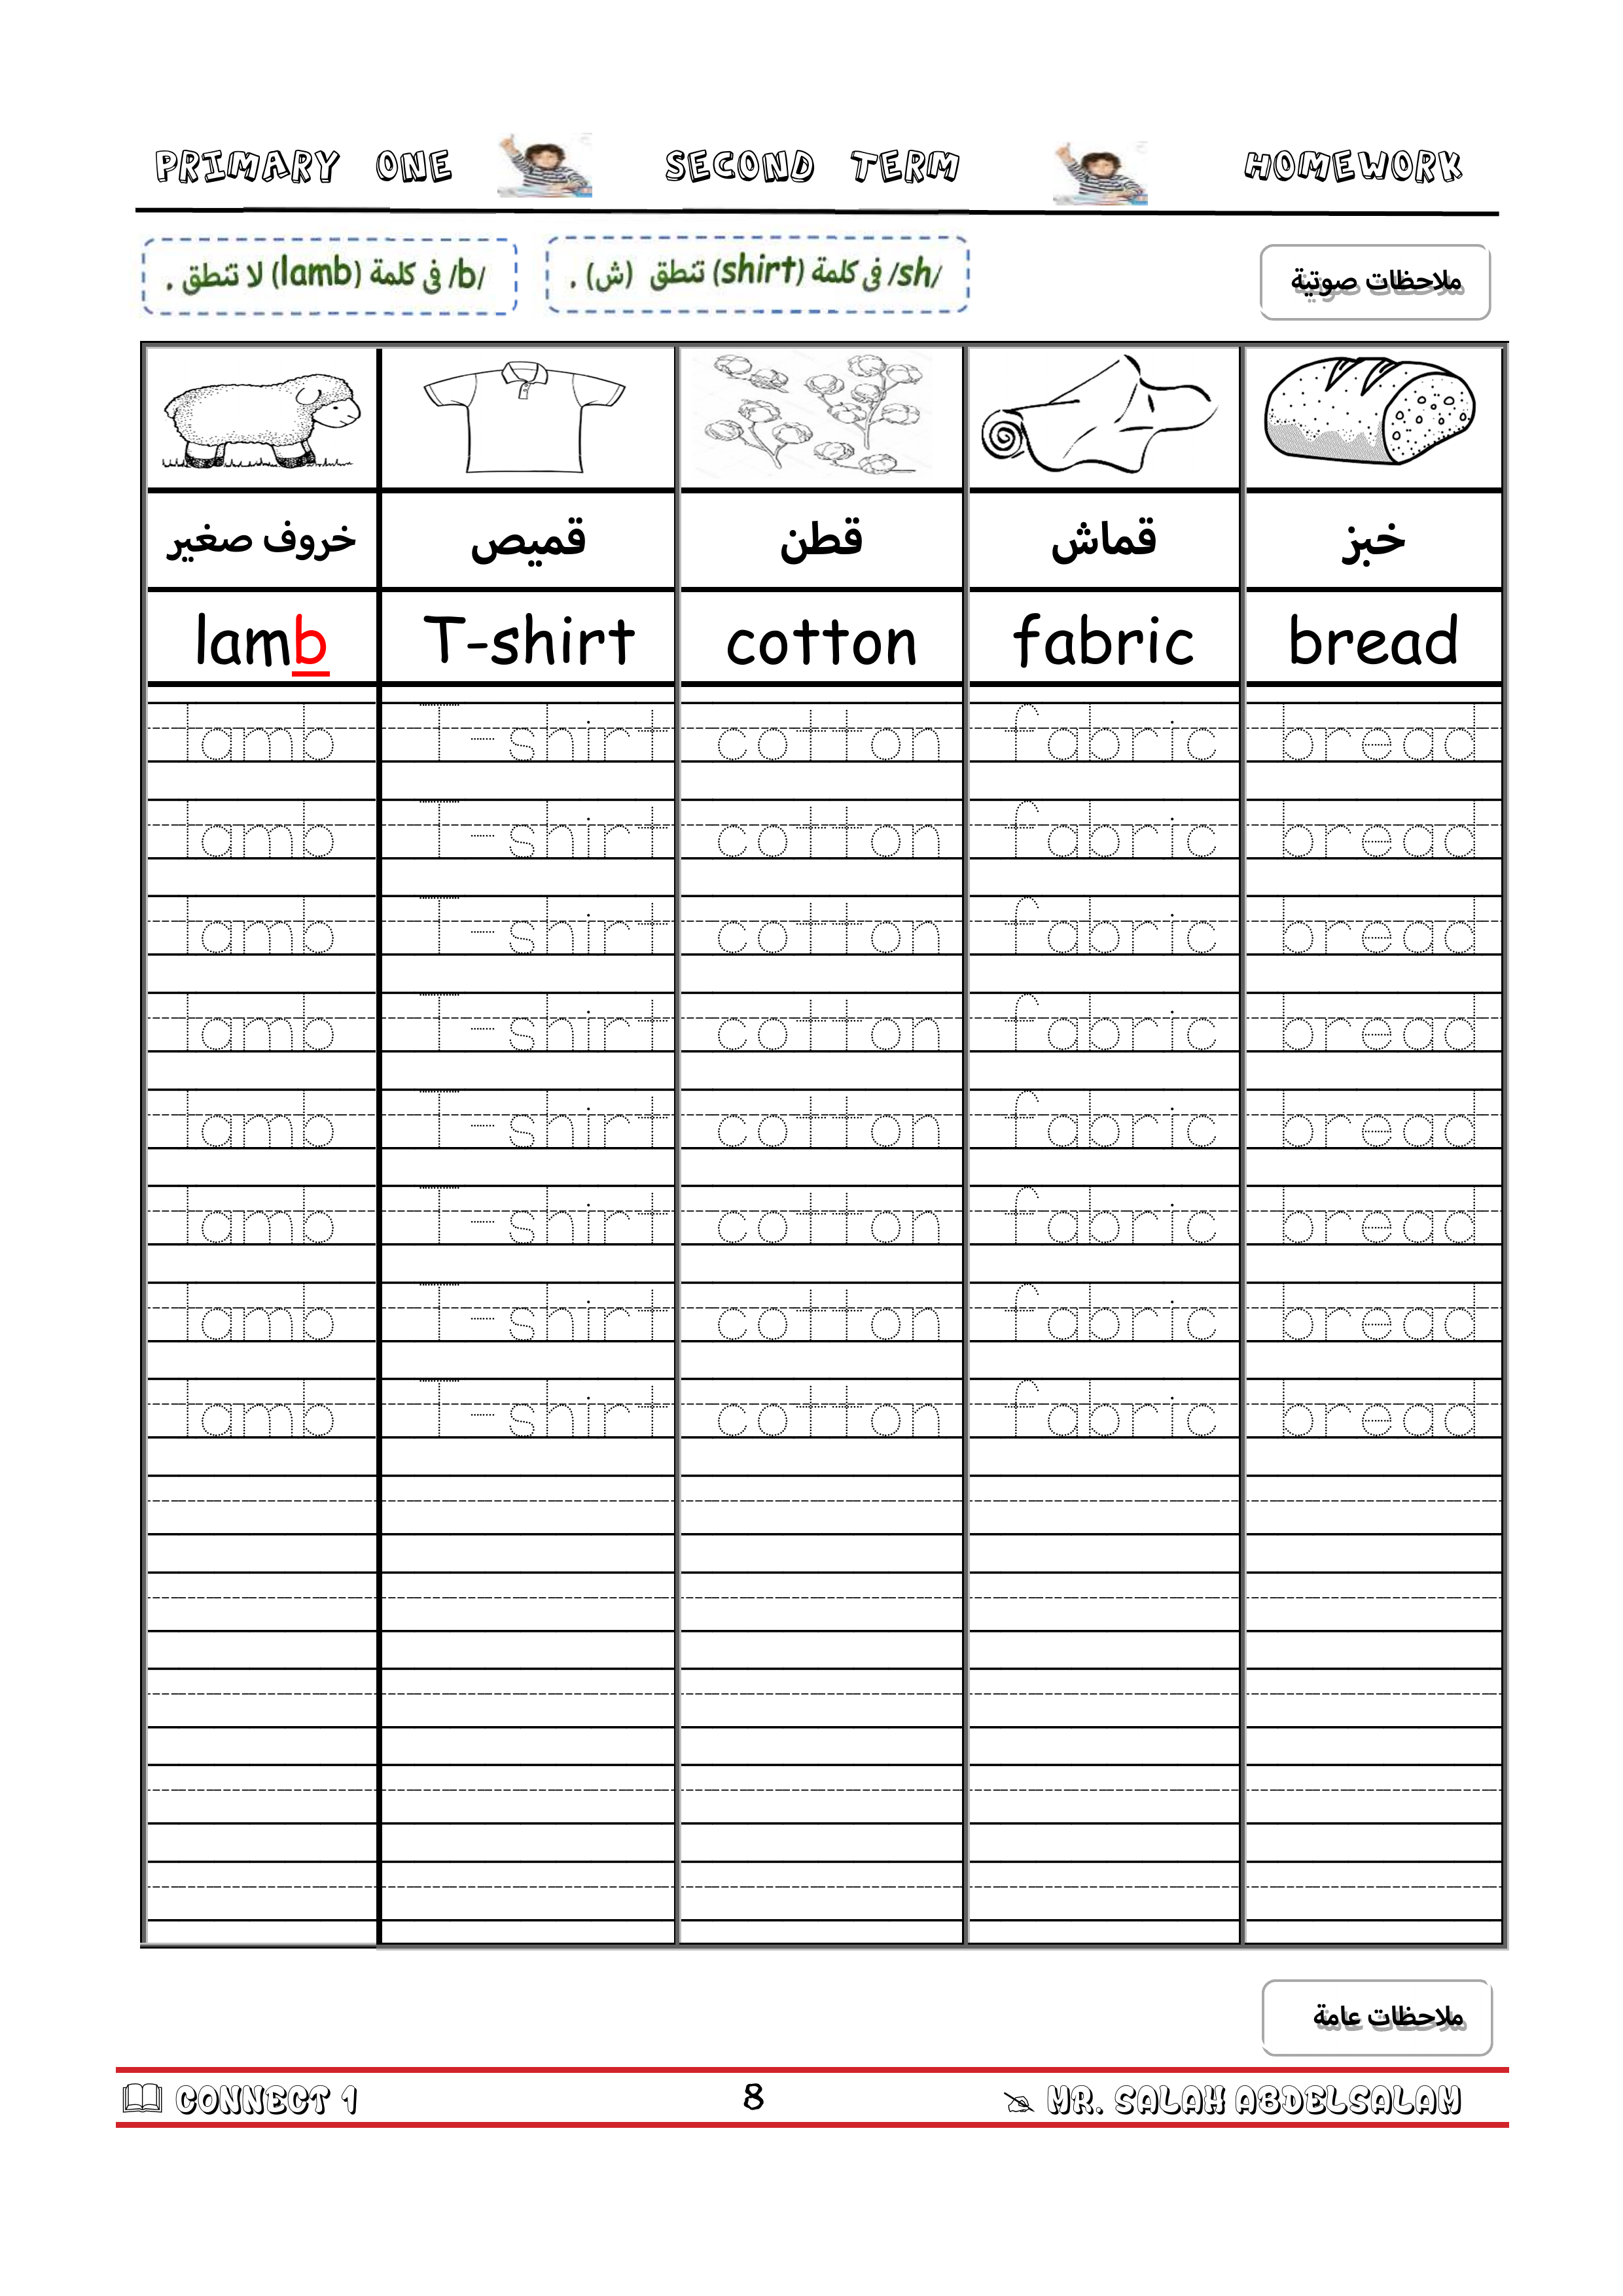 PRIMARY ONE SECOND TERM HOMEWORK
/b/ فى كلمة (lamb) لا تنطق . /sh/ فى كلمة (shirt) تنطق (ش) . ملاحظات صوتية
خروف صغير قميص قطن قماش خبز
lamb T-shirt cotton fabric bread
lamb T-shirt cotton fabric bread
lamb T-shirt cotton fabric bread
lamb T-shirt cotton fabric bread
lamb T-shirt cotton fabric bread
lamb T-shirt cotton fabric bread
lamb T-shirt cotton fabric bread
lamb T-shirt cotton fabric bread
lamb T-shirt cotton fabric bread
ملاحظات عامة
CONNECT 1 8 MR. SALAH ABDELSALAM